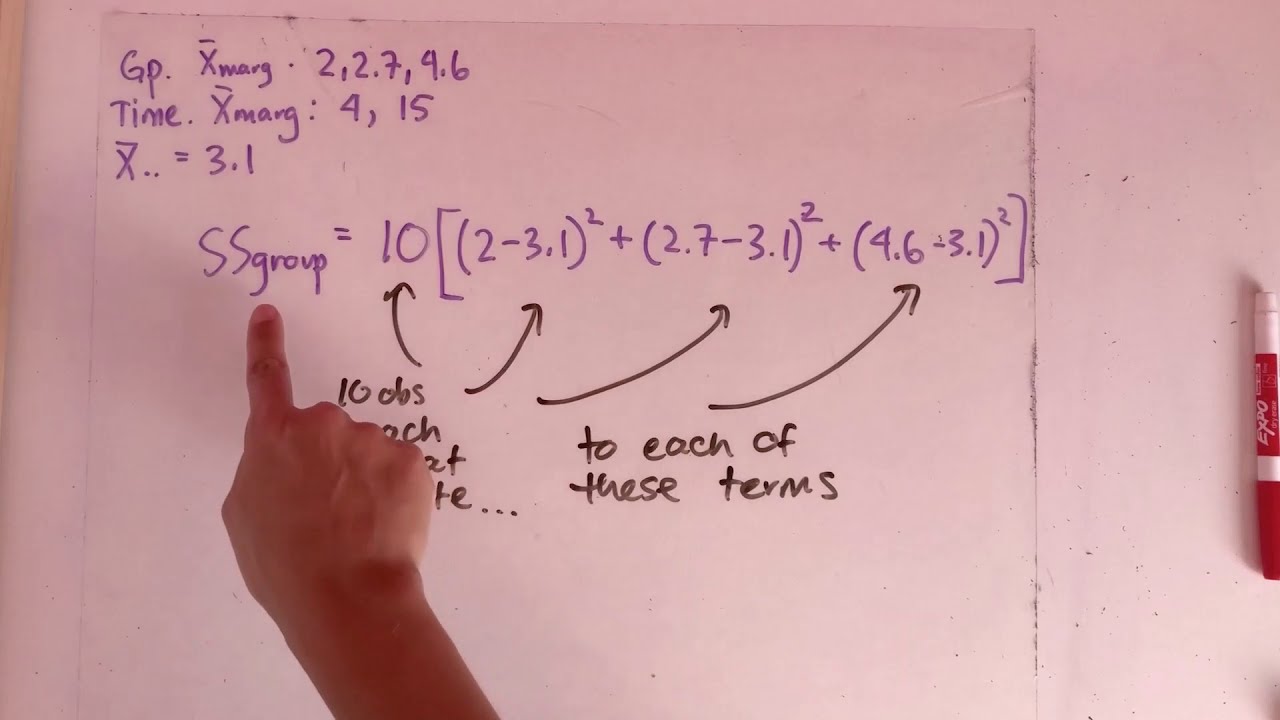 Gp. X̄marg. 2, 2.7, 4.6
Time. X̄marg: 4, 15
X̄.. = 3.1
SSgroup = 10[(2-3.1)² + (2.7-3.1)² + (4.6-3.1)²]
10 obs
to each of
these terms
EXPO